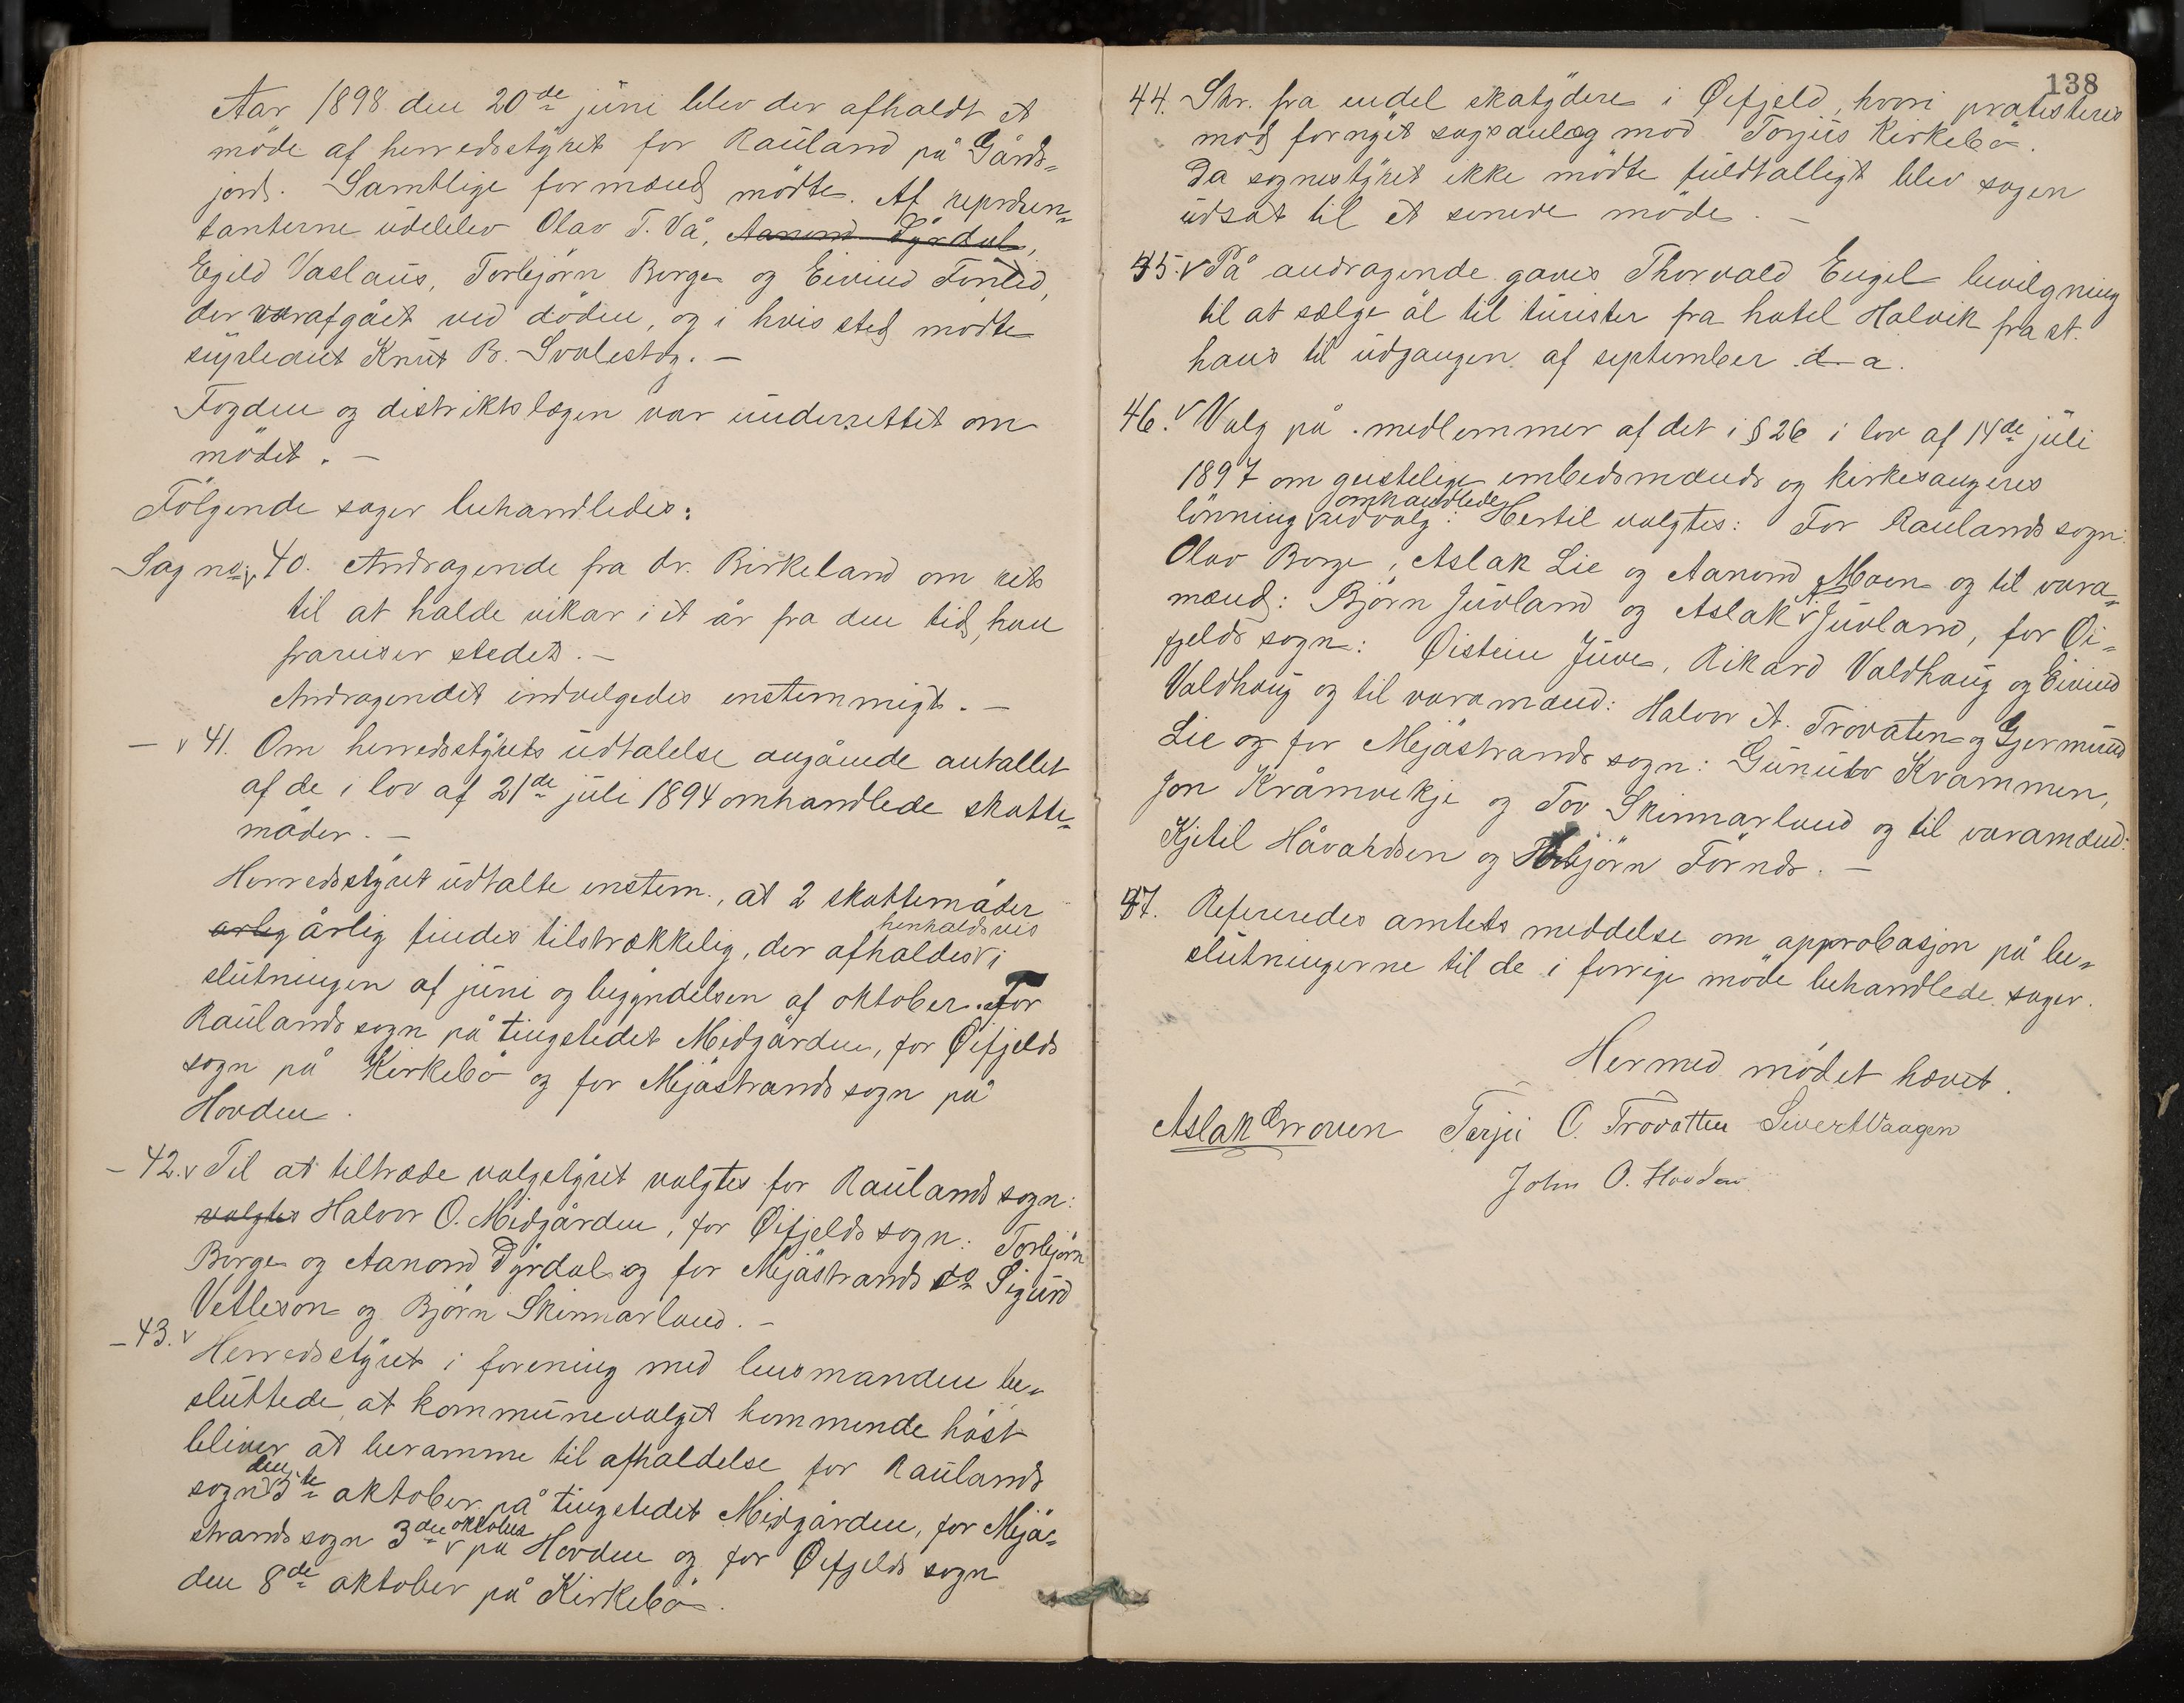 Aar 1898 den 20de juni blev der afholdt et
möde af herredsstyret for Rauland på Gårds-
jord. Samtlige formænd mödte. Af repræsen-
tanterne udeblev Olav T. Vå, Aanund Dyrdal,
Egild Vaslaus, Torbjörn Borge og Eivind
der var afgået ved döden, og i hvis sted mödte
supleant Knut B. Svalestog. —
Fogden og distriktslægen var underrettet om
mödet. —
Fölgende sager behandledes:
Sag no. 40. Andragende fra dr. Birkeland om ret
til at holde vikar i et år fra den tid, han
frareiser stedet. —
Andragendet indvilgedes enstemmigt. —
— 41. Om herredsstyrets udtalelse angående antallet
af de i lov af 21de juli 1894 omhandlede skatte-
möder. —
Herredsstyret udtalte enstem., at 2 skattemöder
henholdsvis
arleg årlig findes tilstrækkelig, der afholdes i
slutningen af juni og begyndelsen af oktober. For
Raulands sogn på tingstedet Midgården, for Öifjelds
sogn på Kirkebö og for Mjöstrands sogn på
Hovden.
— 42. Til at tiltræde valgstyret valgtes for Raulands sogn:
valgtes Halvor O. Midgården, for Øifjelds sogn: Torbjörn
Borge og Aanund Dyrdal og for Mjöstrands do Sigurd
Vetleson og Björn Skinnarland. —
— 43. Herredsstyret i forening med lensmanden be-
sluttede, at kommunevalget kommende höst
bliver at beramme til afholdelse for Raulands
den
sogn 5te oktober på tingstedet Midgården, for Mjö-
oktober
strands sogn 3die på Hovden og for Øifjelds sogn
den 8de oktober på Kirkebö.
138
44. Skr. fra endel skatydere i Øifjeld, hvori protesteres
mod fornyet sagsanlæg mod Torjus Kirkebö.
Da sognestyret ikke mödte fuldtalligt blev sagen
udsat til et senere möde. —
45. På andragende gaves Thorvald Engel bevilgning
til at sælge öl til turister fra hotel Halvik fra st.
hans til udgangen af september d. a.
46. Valg på medlemmer af det i § 26 i lov af 14de juli
1897 om geistelige embedsmænds og kirkesangeres
omhandlede
lönning udvalg: Hertil valgtes: For Raulands sogn:
Olav Borge, Aslak Lie og Aanund Moen og til vara-
A.
mænd: Björn Juvland og Aslak Juvland, for Øi-
fjelds sogn: Øistein Juve, Rikard Valdhaug og Eivind
Valdhaug og til varamænd: Halvor A. Trovaten og Gjermund
Lie og for Mjöstrands sogn: Gunulv Kvammen,
Jon Kråmvikje og Tov Skinnarland og til varamænd:
Kjetil Håvardsen og Torbjörn Förnds. —
47. Refereredes amtets meddelse om approbasjon på be-
slutningerne til de i forrige möde behandlede sager.
Hermed mödet hævet.
Aslak Groven Terjei O. Trovatten Sivert Vaagen
John O. Hovden